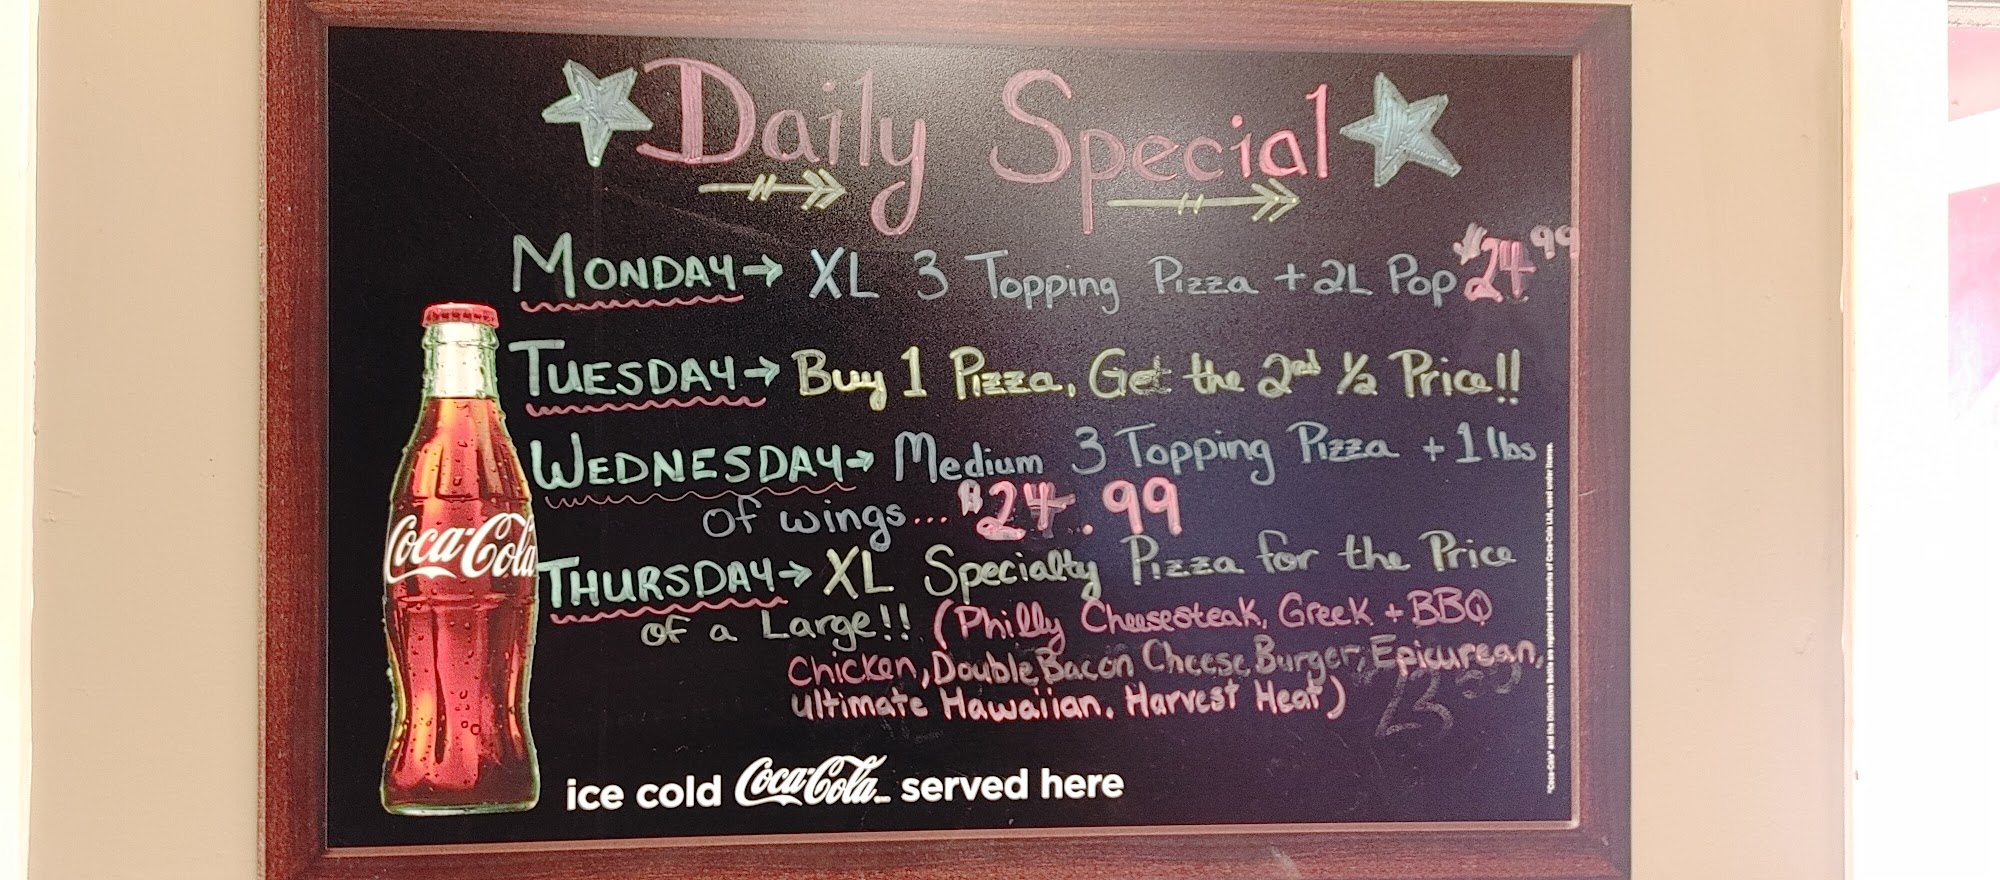 Daily Special
MONDAY → XL 3 Topping Pizza + 2L Pop $24.99
TUESDAY → Buy 1 Pizza, Get the 2nd 1/2 Price!!
WEDNESDAY → Medium 3 Topping Pizza + 1 lbs
of wings... $24.99
THURSDAY → XL Specialty Pizza for the Price
of a Large!! (Philly Cheesesteak, Greek + BBQ
Chicken, Double Bacon Cheese Burger, Epicurean,
Ultimate Hawaiian, Harvest Heat)
Coca-Cola
ice cold Coca-Cola served here
"Coca-Cola" and the Distinctive Bottle are registered trademarks of Coca-Cola Ltd., used under license.